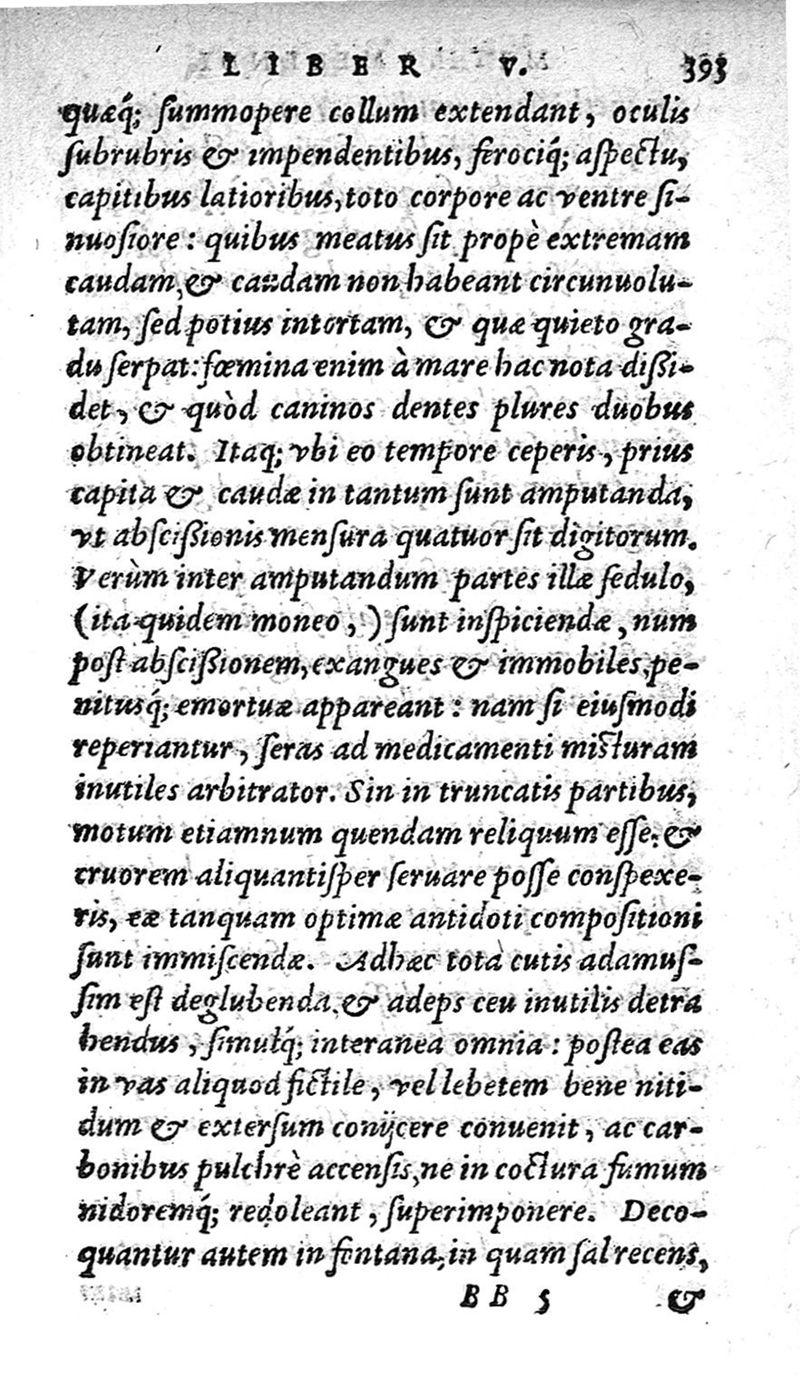 LIBER V. 393
quæq́; ſummopere collum extendant, oculis
ſubrubris & impendentibus, ferociq́; aſpectu,
capitibus latioribus, toto corpore ac ventre ſi-
nuoſiore: quibus meatus ſit propè extremam
caudam, & caudam non habeant circunuolu-
tam, ſed potius intortam, & quæ quieto gra-
du ſerpat: fœmina enim à mare hac nota diſsi-
det, & quòd caninos dentes plures duobus
obtineat. Itaq; vbi eo tempore ceperis, prius
capita & caudæ in tantum ſunt amputanda,
vt abſciſsionis menſura quatuor ſit digitorum.
Verùm inter amputandum partes illæ ſedulo,
(ita quidem moneo,) ſunt inſpiciendæ, num
poſt abſciſsionem, exangues & immobiles, pe-
nitusq́; emortuæ appareant: nam ſi eiuſmodi
reperiantur, ſeras ad medicamenti miſturam
inutiles arbitrator. Sin in truncatis partibus,
motum etiamnum quendam reliquum eſſe: &
cruorem aliquantiſper ſeruare poſſe conſpexe-
ris, eæ tanquam optimæ antidoti compoſitioni
ſunt immiſcendæ. Adhæc tota cutis adamuſ-
ſim eſt deglubenda, & adeps ceu inutilis detra
hendus, ſimulq́; interanea omnia: poſtea eas
in vas aliquod fictile, vel lebetem bene niti-
dum & exterſum conijcere conuenit, ac car-
bonibus pulchrè accenſis, ne in coctura fumum
nidoremq́; redoleant, ſuperimponere. Deco-
quantur autem in fontana, in quam ſal recens,
BB 5 &